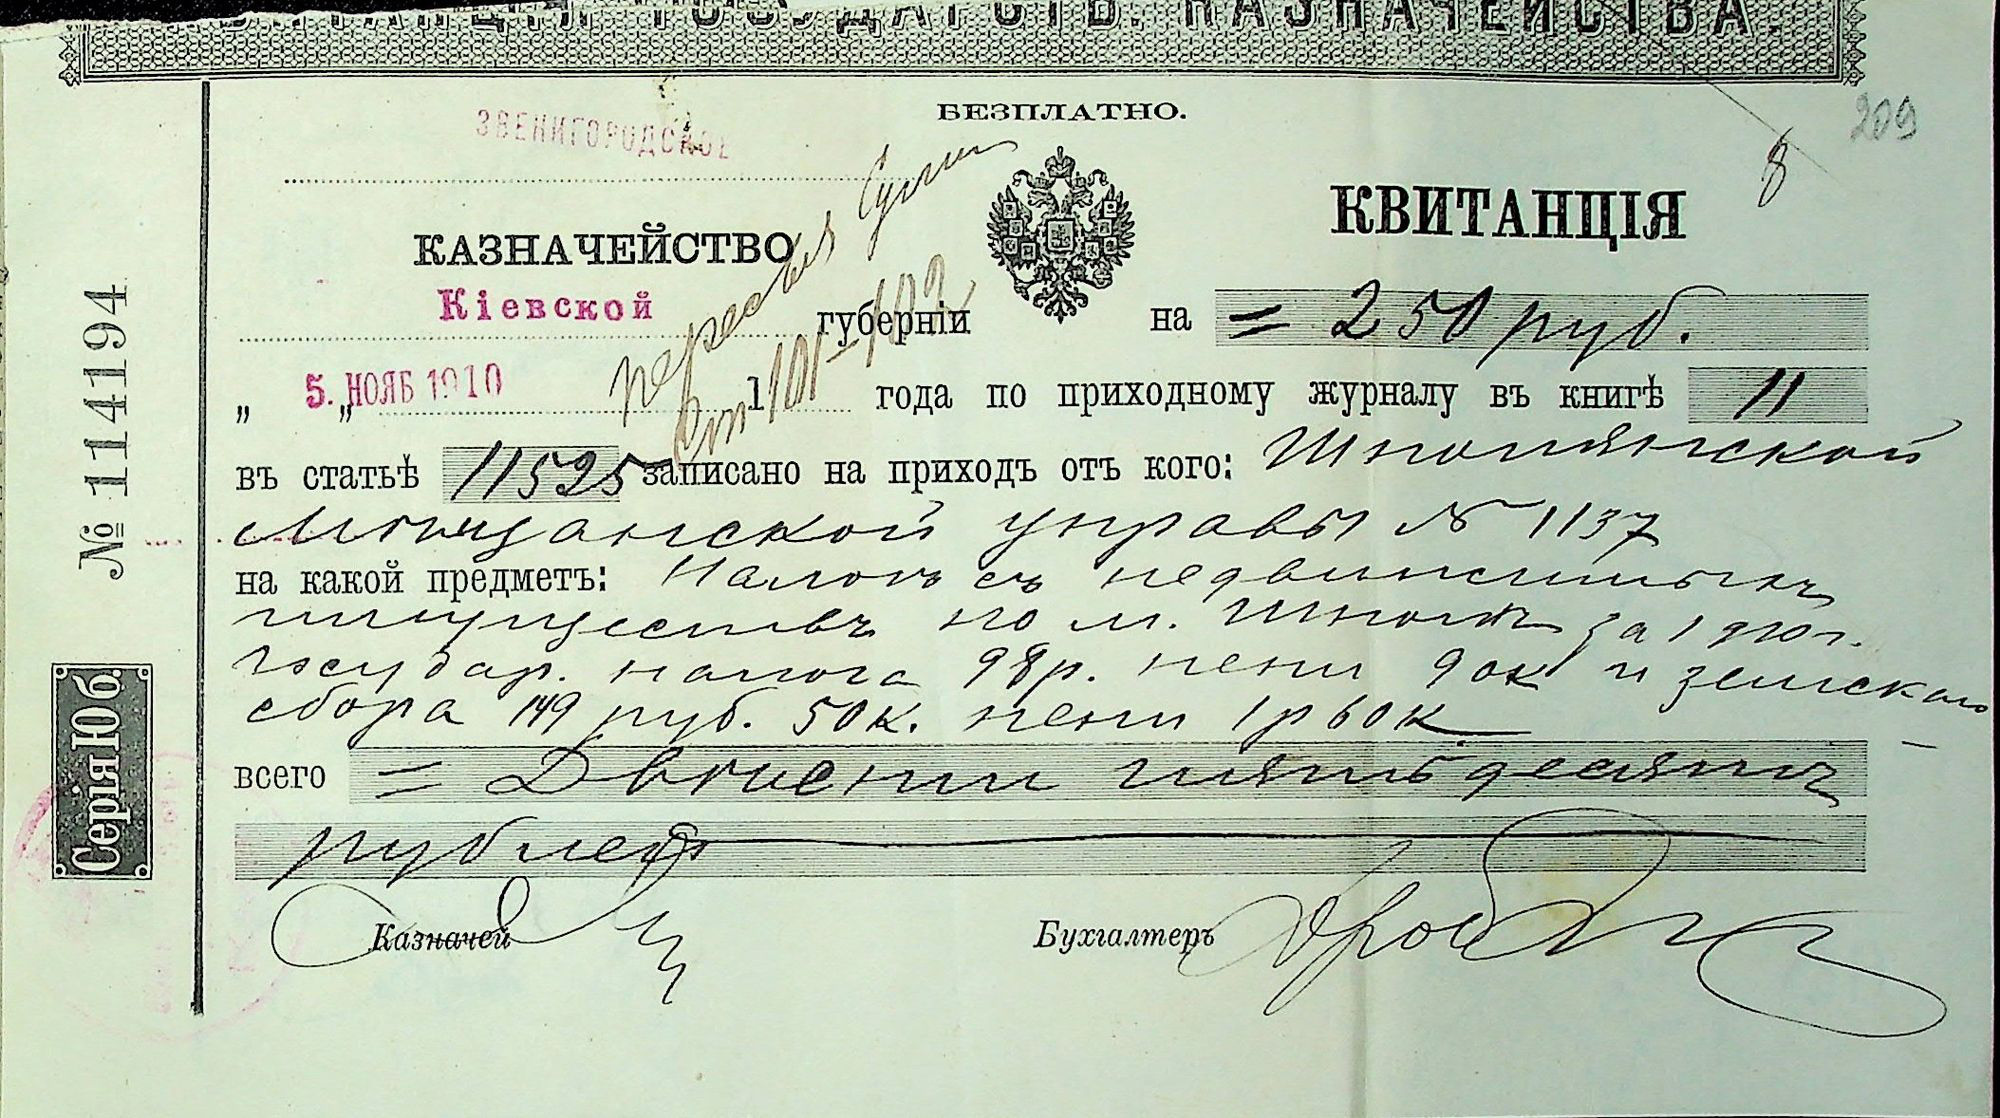 КВИТАНЦІЯ ГОСУДАРСТВ. КАЗНАЧЕЙСТВА.
БЕЗПЛАТНО.
209
8
ЗВЕНИГОРОДСКОЕ
КАЗНАЧЕЙСТВО
Кіевской
губерніи
КВИТАНЦІЯ
на = 250 руб.
„ 5. НОЯБ 1910 „ 1 года по приходному журналу въ книгѣ 11
въ статьѣ 11525 записано на приходъ отъ кого: Шполянской
Мѣщанской управы № 1137
на какой предметъ: Налогъ съ недвижимыхъ
имуществъ по м. Шполѣ за 1910 г.
государ. налога 98 р. пени 90 к и земскаго
сбора 149 руб. 50 к. пени 1 р 60 к
всего = Двѣсти пятьдесятъ
рублей
Казначей
Бухгалтеръ
№ 1141194
Серія Ю б.